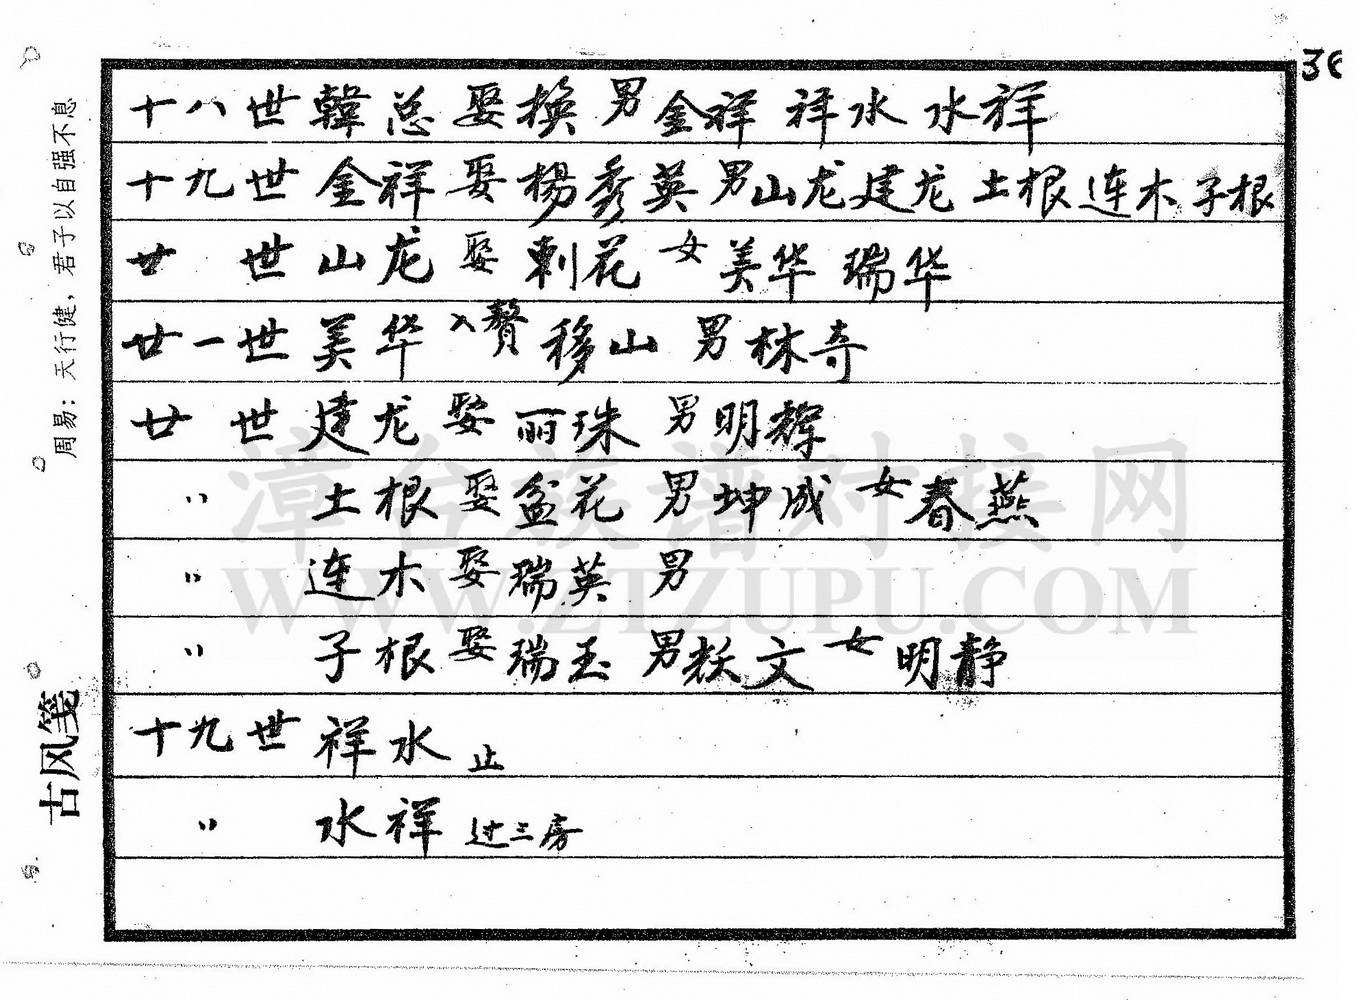 36
十八世韓总娶换男金祥 祥水 水祥
十九世金祥娶楊秀英男山龙建龙 土根连木子根
廿 世山龙娶刺花女美华 瑞华
廿一世美华入贅移山男林奇
廿 世建龙娶丽珠男明辉
〃 土根娶盆花男坤成女春燕
〃 连木娶瑞英男
〃 子根娶瑞玉男 文女明静
十九世祥水止
〃 水祥过三房
周易：天行健，君子以自强不息
古风笺
漳台族谱对接网
WWW.ZTZUPU.COM